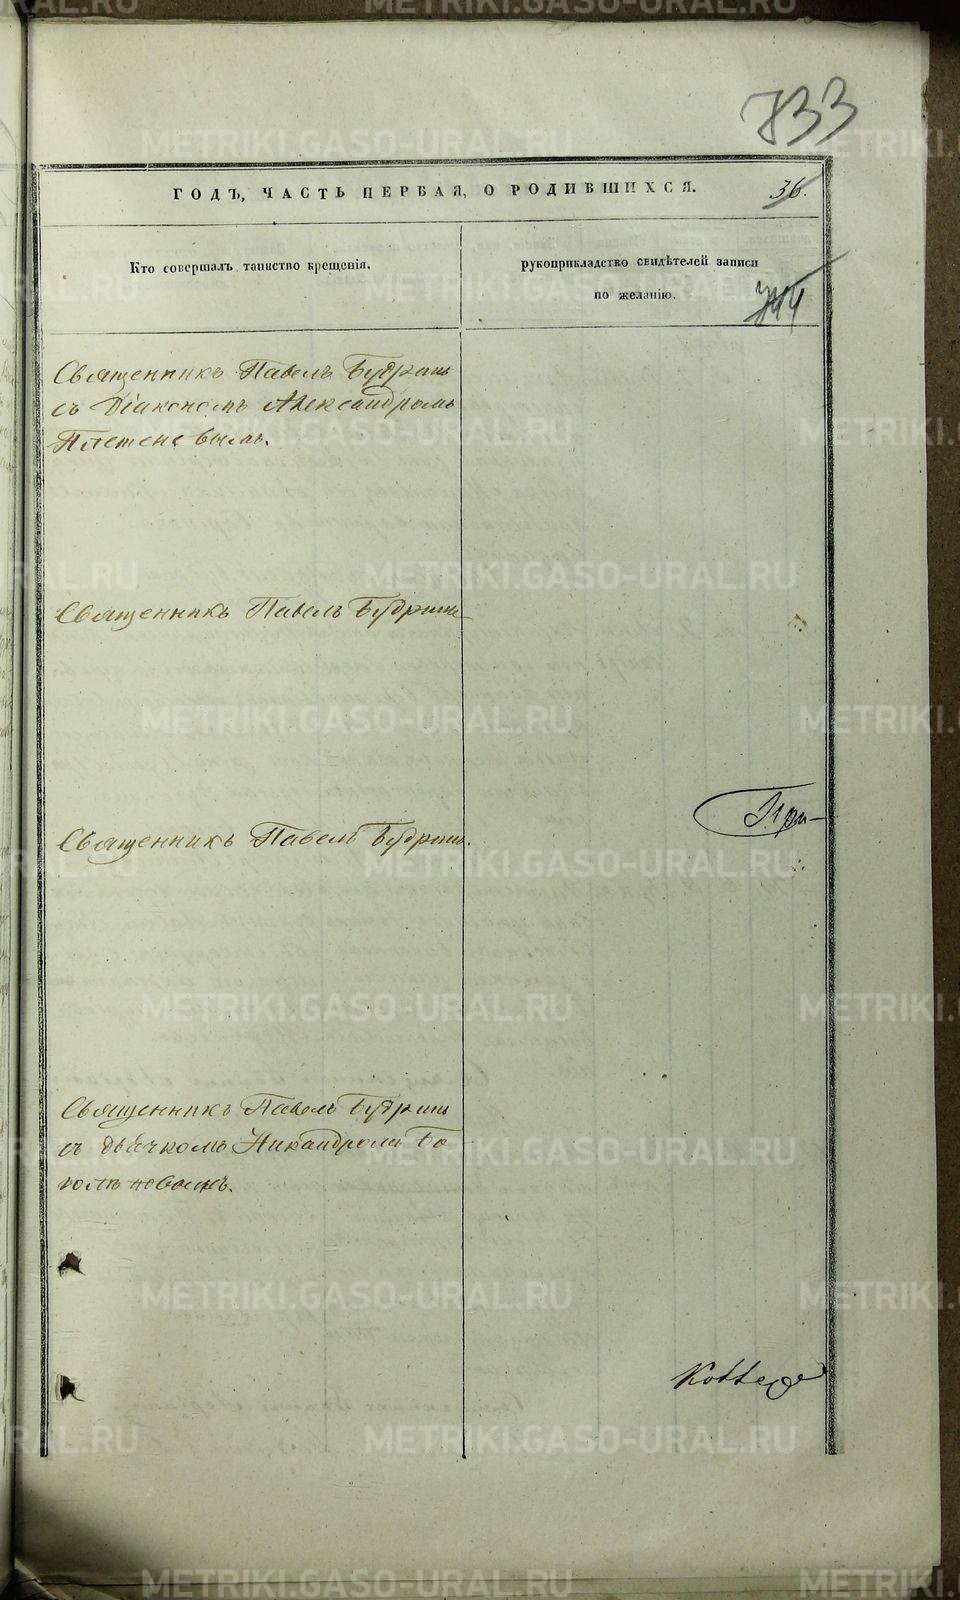 733
ГОДЪ, ЧАСТЬ ПЕРВАЯ, О РОДИВШИХСЯ.
36.
Кто совершалъ таинство крещенія.
рукоприкладство свидѣтелей записи
по желанію.
344
Священникъ Павелъ Будринъ
съ Діакономъ Александромъ
Плетеневымъ.
Священникъ Павелъ Будринъ
Священникъ Павелъ Будринъ.
При-
Священникъ Павелъ Будринъ
съ дьячкомъ Никандромъ Бо
голѣповымъ.
METRIKI.GASO-URAL.RU